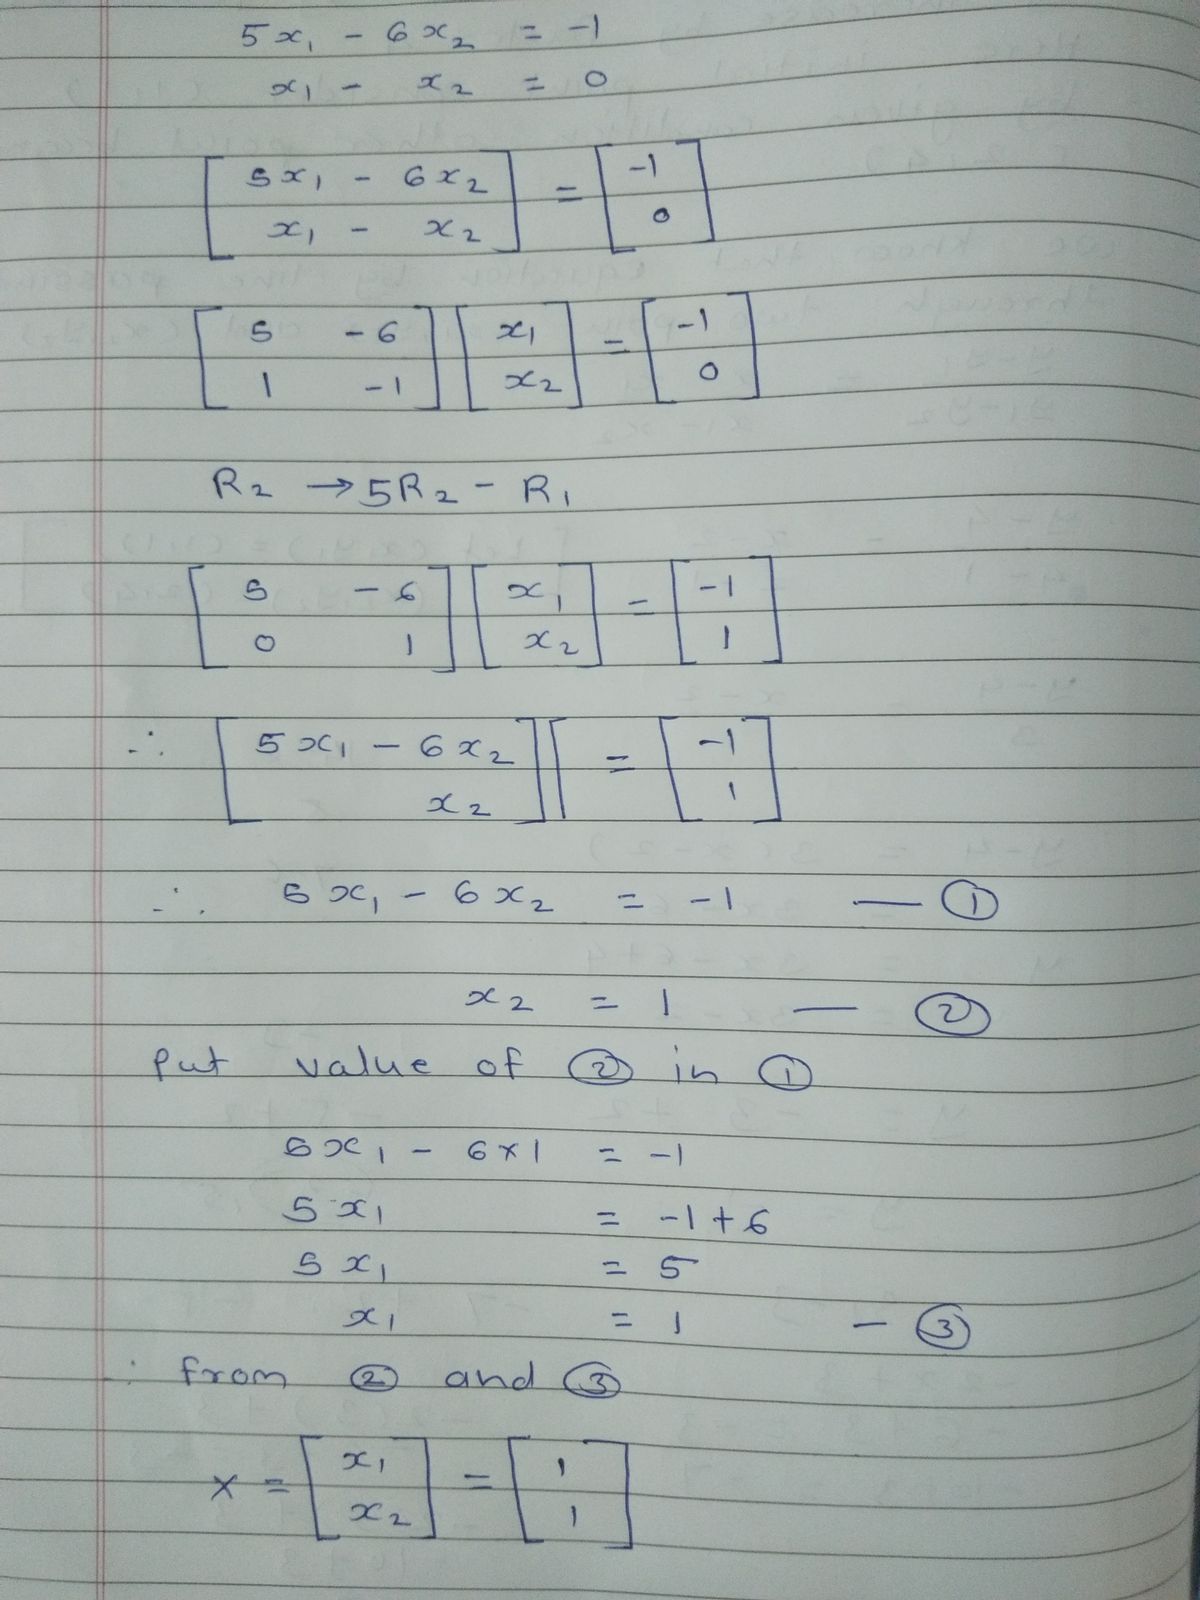 5x₁ - 6x₂ = -1
x₁ - x₂ = 0
[ 5x₁ - 6x₂ ] = [ -1 ]
[ x₁ - x₂ ] [ 0 ]
[ 5 -6 ] [ x₁ ] = [ -1 ]
[ 1 -1 ] [ x₂ ] [ 0 ]
R₂ → 5R₂ - R₁
[ 5 -6 ] [ x₁ ] = [ -1 ]
[ 0 1 ] [ x₂ ] [ 1 ]
∴ [ 5x₁ - 6x₂ ] [ = [ -1 ]
[ x₂ ] [ 1 ]
∴ 5x₁ - 6x₂ = -1 — ①
x₂ = 1 — ②
Put value of ② in ①
5x₁ - 6×1 = -1
5x₁ = -1+6
5x₁ = 5
x₁ = 1 - ③
∴ from ② and ③
x = [ x₁ ] = [ 1 ]
[ x₂ ] [ 1 ]